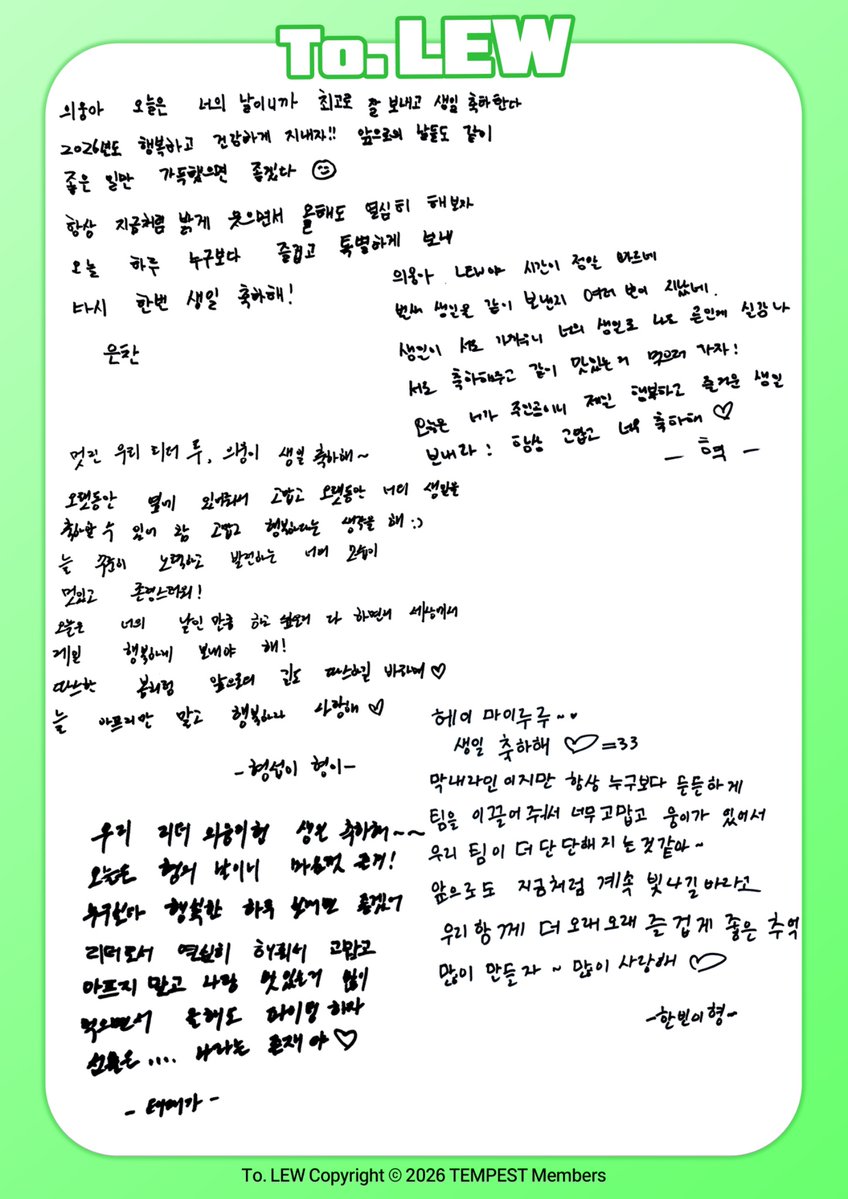 To. LEW
의웅아 오늘은 너의 날이니까 최고로 잘 보내고 생일 축하한다
2026년도 행복하고 건강하게 지내자!! 앞으로의 날들도 같이
좋은 일만 가득했으면 좋겠다
항상 지금처럼 밝게 웃으면서 올해도 열심히 해보자
오늘 하루 누구보다 즐겁고 특별하게 보내
다시 한번 생일 축하해!
은찬
의웅아 LEW야 시간이 정말 빠르네
벌써 생일을 같이 보낸지 여러 번이 지났네.
생일이 서로 가까우니 너의 생일로 나도 신감나
서로 축하해주고 같이 맛있는거 먹으러 가자!
오늘은 너가 주인공이니 제일 행복하고 즐거운 생일
보내라! 항상 고맙고 너무 축하해 ♡
- 혁 -
멋진 우리 리더 루, 의웅이 생일 축하해~
오랫동안 옆에 있어줘서 고맙고 오랫동안 너의 생일을
축하할 수 있어 참 고맙고 행복하다는 생각을 해 :)
늘 꾸준히 노력하고 발전하는 너의 모습이
멋있고 존경스러워!
오늘은 너의 날인 만큼 하고 싶은거 다 하면서 세상에서
제일 행복하게 보내야 해!
따스한 봄처럼 앞으로의 길도 따스하길 바라며 ♡
늘 아프지만 말고 행복하자 사랑해 ♡
- 형섭이 형이 -
헤이 마이루루~
생일 축하해 ♡=33
막내라인이지만 항상 누구보다 든든하게
팀을 이끌어줘서 너무 고맙고 웅이가 있어서
우리 팀이 더 단단해지는것같아~
앞으로도 지금처럼 계속 빛나길바라고
우리함께 더 오래오래 즐겁게 좋은 추억
많이 만들자~ 많이 사랑해 ♡
-한빈이형-
우리 리더 의웅이형 생일 축하해~~
오늘은 형의 날이니 마음껏 즐겨!
누구보다 행복한 하루 보내면 좋겠어
리더로서 열심히 해줘서 고맙고
아프지 말고 나랑 맛있는거 많이
먹으면서 올해도 파이팅 하자
선물은.... 나라는 존재야 ♡
- 태래가 -
To. LEW Copyright © 2026 TEMPEST Members